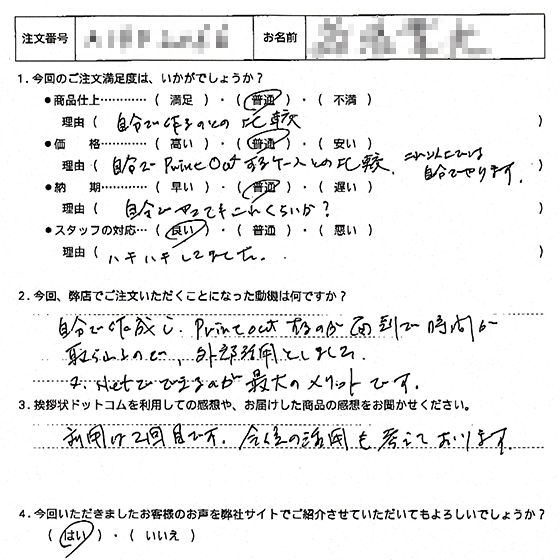 注文番号 お名前
1.今回のご注文満足度は、いかがでしょうか?
●商品仕上…………( 満足 )・( 普通 )・( 不満 )
理由( 自分で作るのとの比較 )
●価 格…………( 高い )・( 普通 )・( 安い )
理由( 自分でPrint Outするケースとの比較、 自分でやります。 )
●納 期…………( 早い )・( 普通 )・( 遅い )
理由( 自分でやってもこれくらいか? )
●スタッフの対応…( 良い )・( 普通 )・( 悪い )
理由( ハキハキしてました。 )
2.今回、弊店でご注文いただくことになった動機は何ですか?
自分で作成し、Print outするのが面倒で時間が
取られるので、外部活用としました
又、Netでできるのが最大のメリットです。
3.挨拶状ドットコムを利用しての感想や、お届けした商品の感想をお聞かせください。
利用は2回目です。今後の活用も考えております。
4.今回いただきましたお客様のお声を弊社サイトでご紹介させていただいてもよろしいでしょうか?
( はい )・( いいえ )